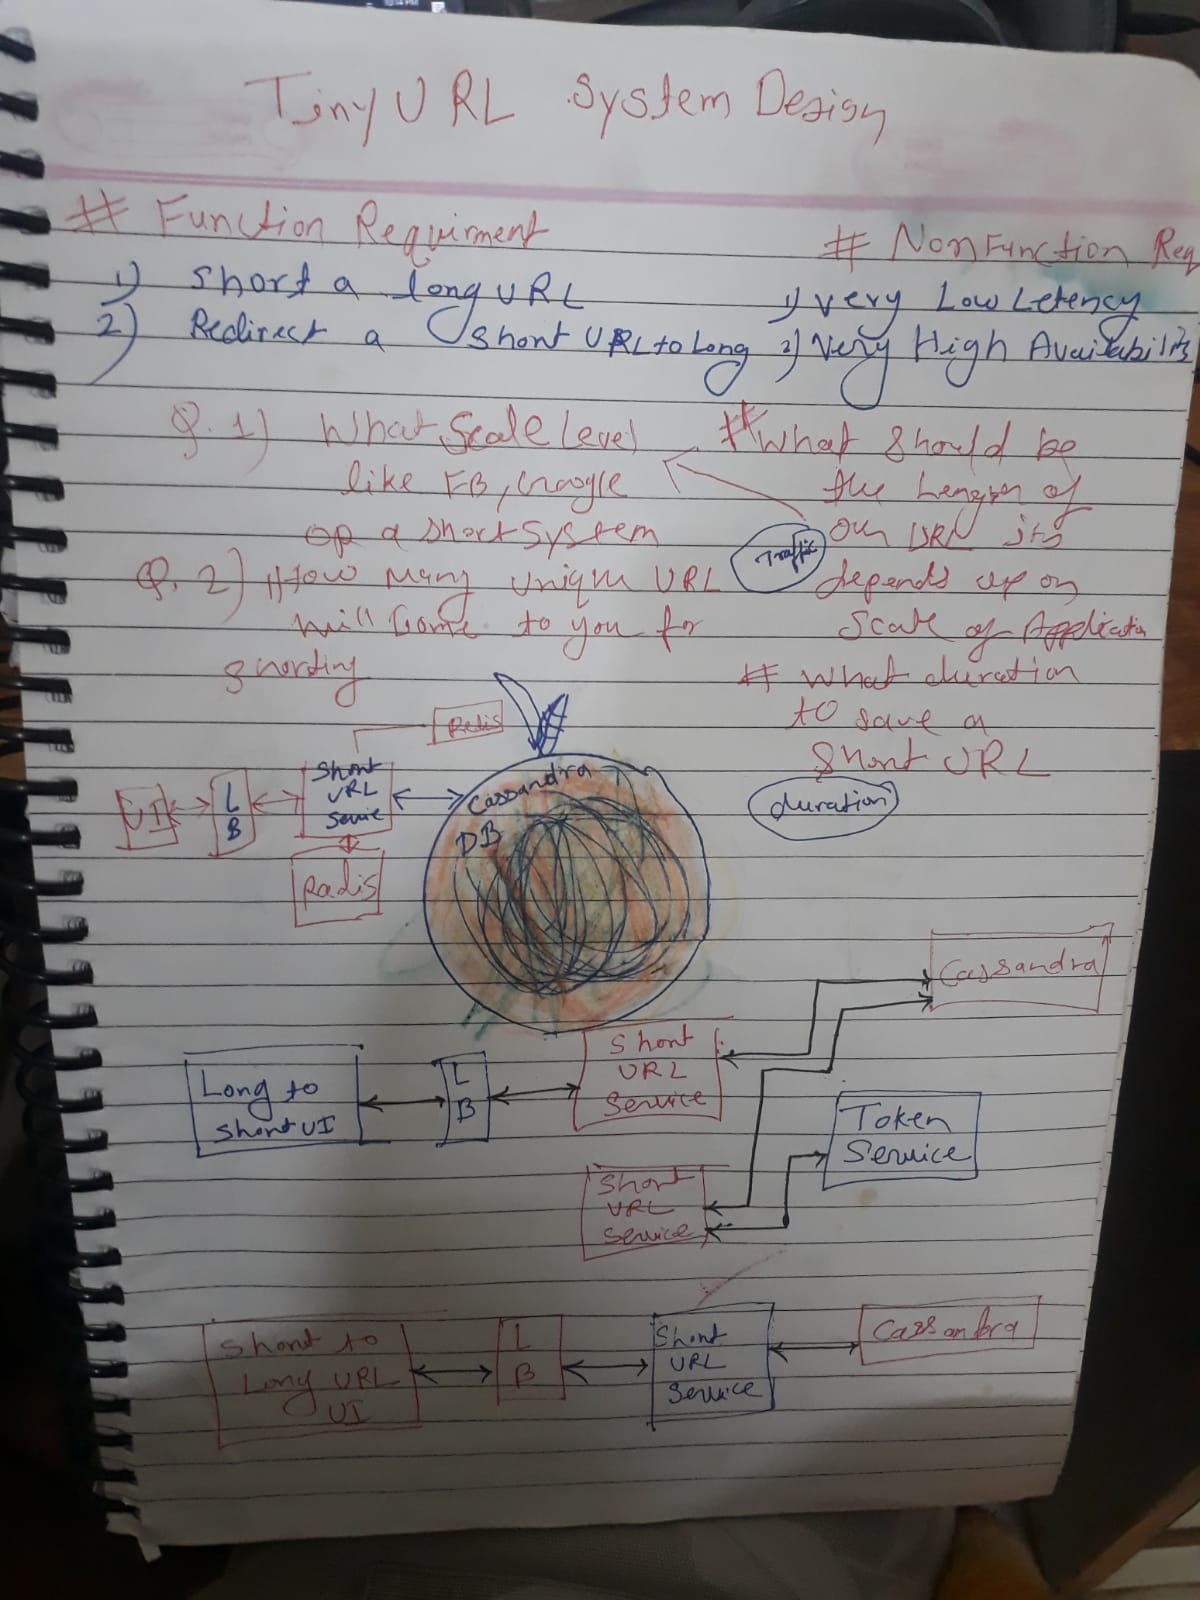 Tiny URL System Design
# Function Requirment
1) Short a long URL
2) Redirect a Short URL to Long
# Non Function Req
1) Very Low Letency
2) Very High Availability
Q.1) What Scale Level
like FB, Google
or a short System
Q.2) How Many Unique URL
will Come to you for
shorting
# What should be
the Length of
our URL its
depends up on
Scale of Application
Traffic
# What duration
to save a
Short URL
duration
Redis
UI
L
B
Short
URL
Servic
Radis
Cassandra
DB
Cassandra
Long to
Short UI
L
B
Short
URL
Service
Token
Service
Short
URL
Service
Short to
Long URL
UI
L
B
Short
URL
Service
Cassandra